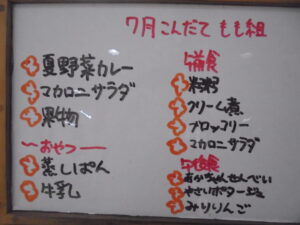 7月こんだて もも組
夏野菜カレー
マカロニサラダ
果物
〜おやつ〜
蒸しぱん
牛乳
午前食
米粥
クリーム煮
ブロッコリー
マカロニサラダ
午後食
あかちゃんせんべい
やさいポタージュ
みりりんご